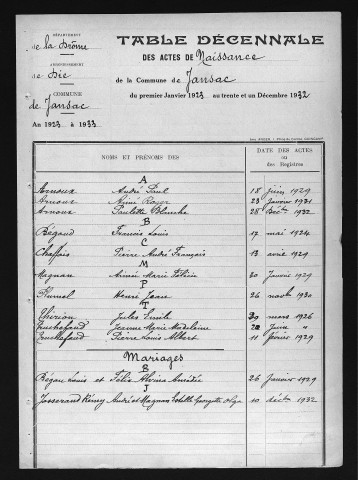 DÉPARTEMENT
de la Drôme
ARRONDISSEMENT
de Die
COMMUNE
de Jansac
An 1923 à 1933
TABLE DÉCENNALE
DES ACTES DE Naissance
de la Commune de Jansac
du premier Janvier 1923 au trente et un Décembre 1932
NOMS ET PRÉNOMS DES DATE DES ACTES
ou
des Registres
A
Arnoux André Paul 18 juin 1929
Arnoux Aimé Roger 23 janvier 1931
Arnoux Paulette Blanche 28 déc 1932
B
Bégaud François Louis 17 mai 1924
C
Chaffois Pierre André François 13 avril 1929
M
Magnan Aimée Marie Félicie 30 janvier 1929
P
Plumel Henri Jean 26 nov 1930
T
Thérion Jules Emile 29 mars 1926
Truchefaud Jeanne Marie Madeleine 22 Juin "
Truchefaud Pierre Louis Albert 11 février 1929
Mariages
B
Bégou Louis et Félix Alvina Amédée 26 janvier 1929
J
Josserand Rémy André et Magnan Estelle Georgette Olga 10 déc 1932